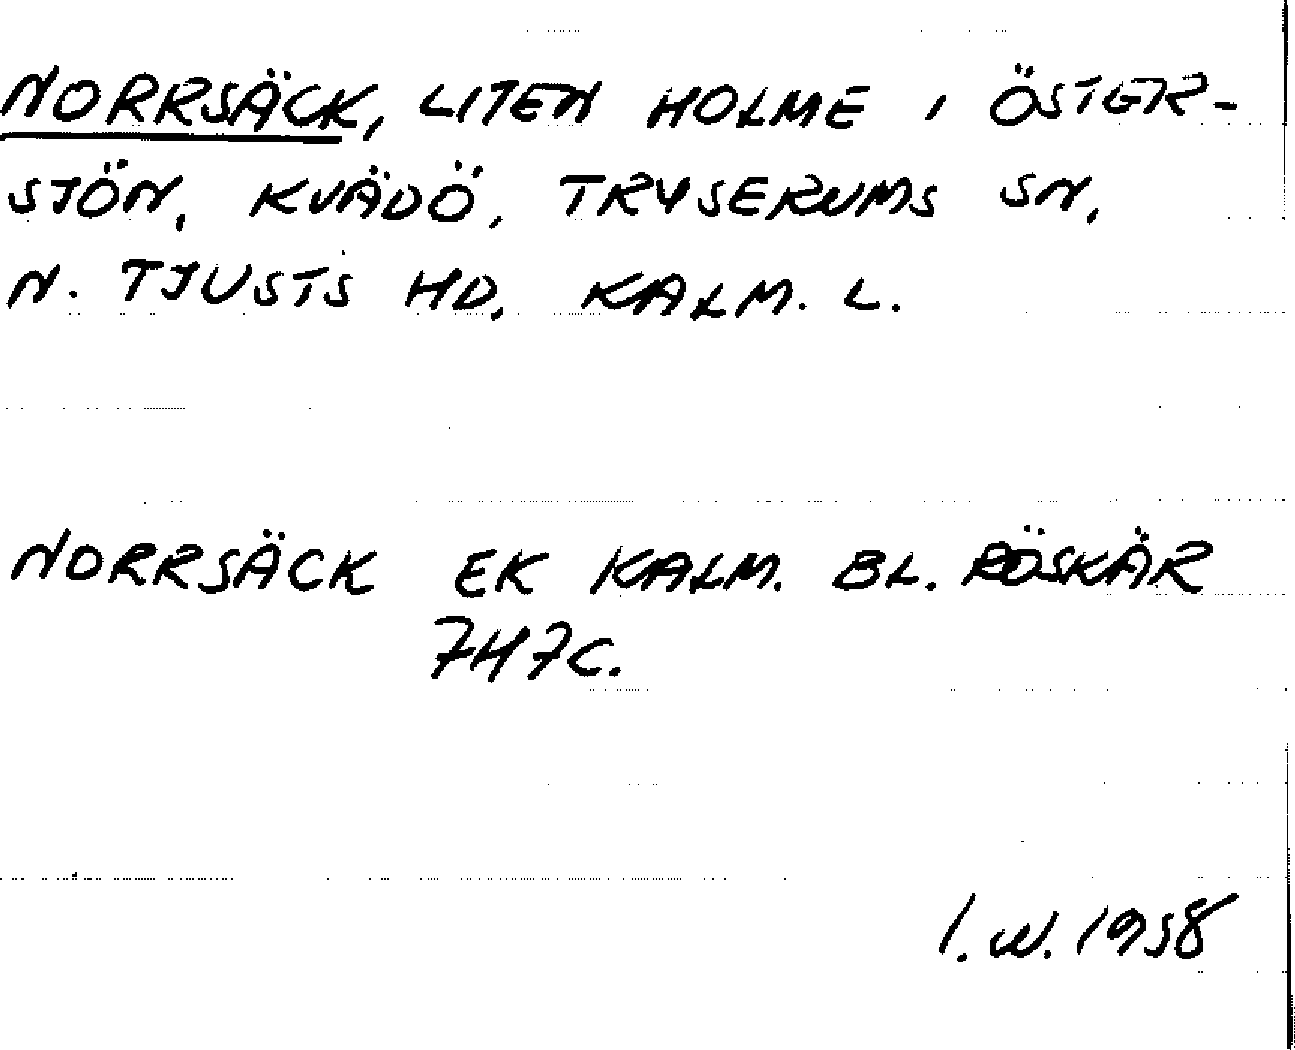 NORRSÄCK, LITEN HOLME I ÖSTER-
SJÖN, KVÄDÖ, TRYSERUMS SN,
N. TJUSTS HD, KALM. L.
NORRSÄCK EK KALM. BL. RÖSKÄR
747C.
I.W. 1958